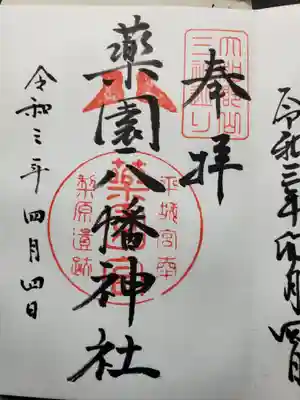 奉拝
大和郡山
三社巡り
薬園八幡神社
平城宮南
薬園宮
梨原遺跡
令和三年四月四日
令和三年卯月四日